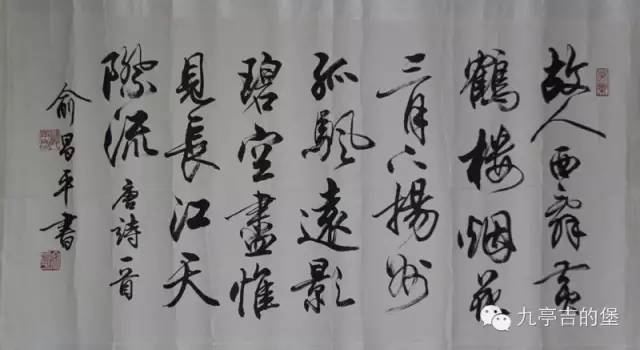 故人西辭黃
鶴楼烟花
三月下揚州
孤颿遠影
碧空盡惟
見長江天
際流 唐詩一首
俞昌平書
九亭吉的堡